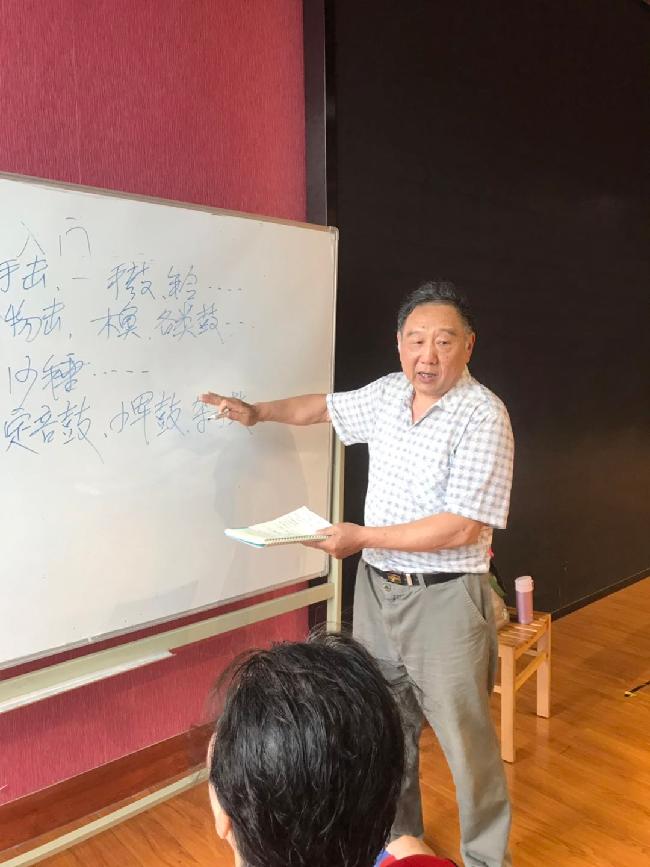 入门
手击, 一 手鼓、铃....
物击, 木奥、各类鼓...
沙锤.....
定音鼓、小军鼓、架子鼓